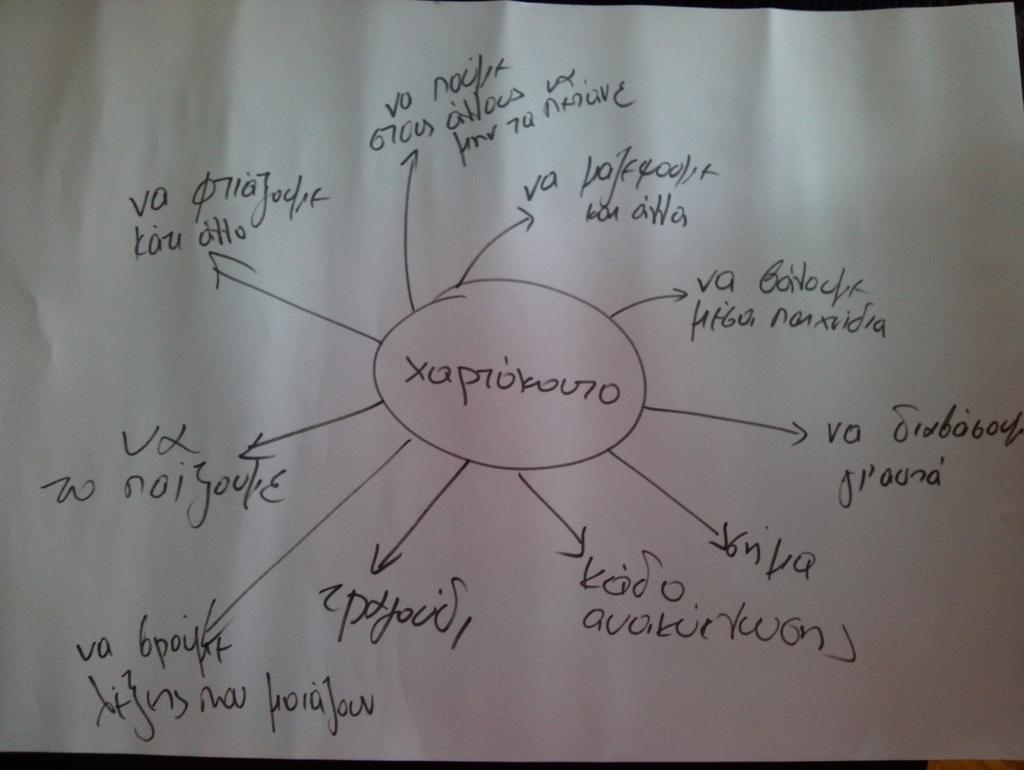 να πούμε
στους άλλους να
μην τα πετάνε
να φτιάξουμε
κάτι άλλο
να μαζέψουμε
και άλλα
να βάλουμε
μέσα παιχνίδια
χαρτόκουτο
να διαβάσουμ
γι'αυτά
να
το παίξουμε
σήμα
κάδο
ανακύκλωσης
τραγούδι
να βρούμε
λέξεις που μοιάζουν